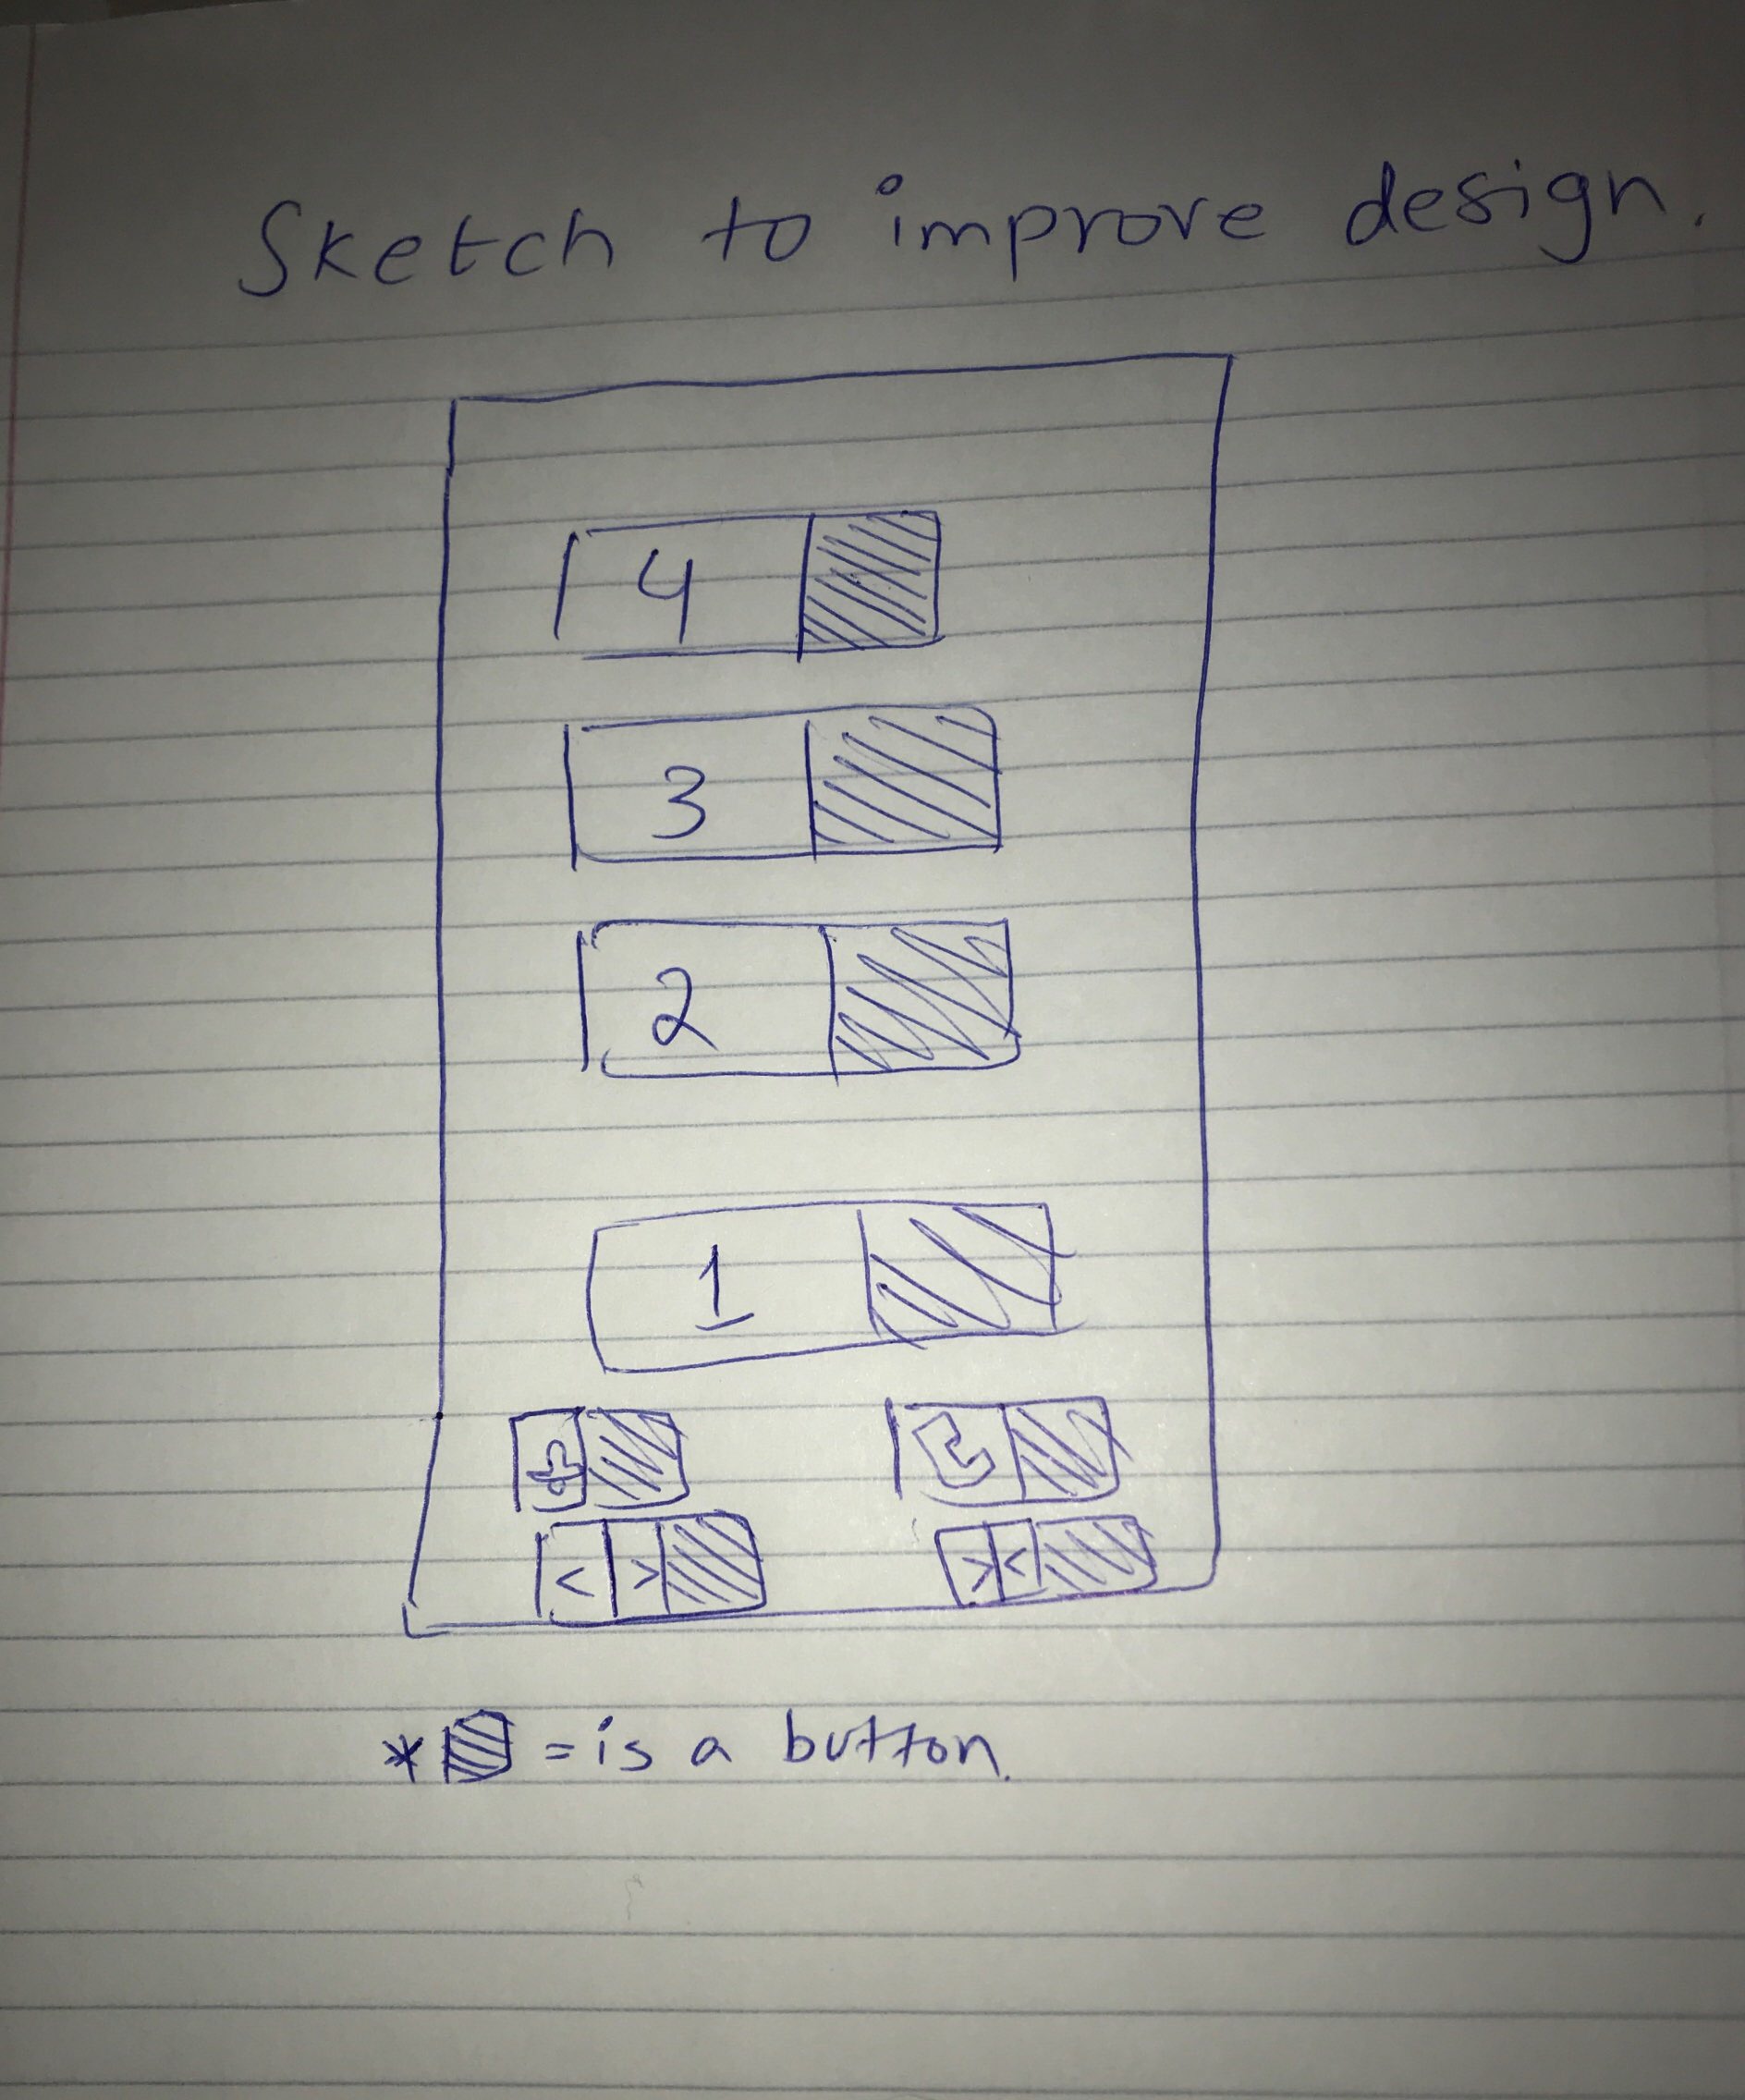 Sketch to improve design.
4
3
2
1
< >
> <
* = is a button.